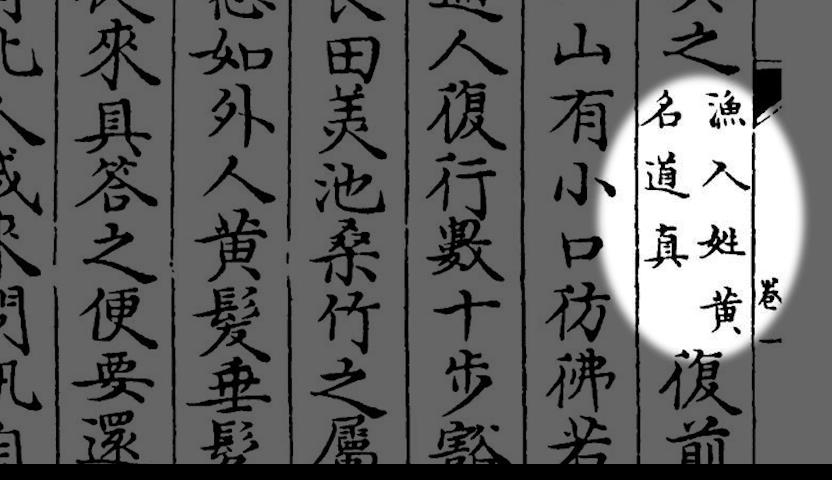 卷一
之
漁人姓黄
名道真
復前
山有小口彷彿若
人復行數十步豁
田美池桑竹之屬
如外人黄髮垂髫
來具答之便要還
人咸來問訊自